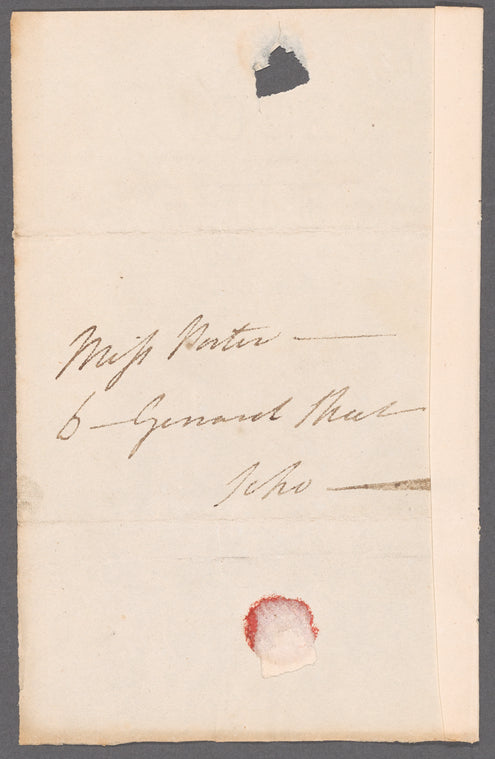 Miss Porter —
6 — Gerrard Street
Soho —